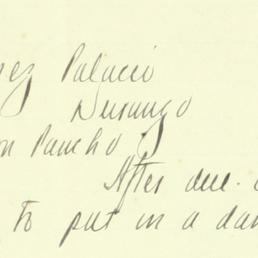 ez Palacio
Durango
on Pancho
After due
to put in a dam